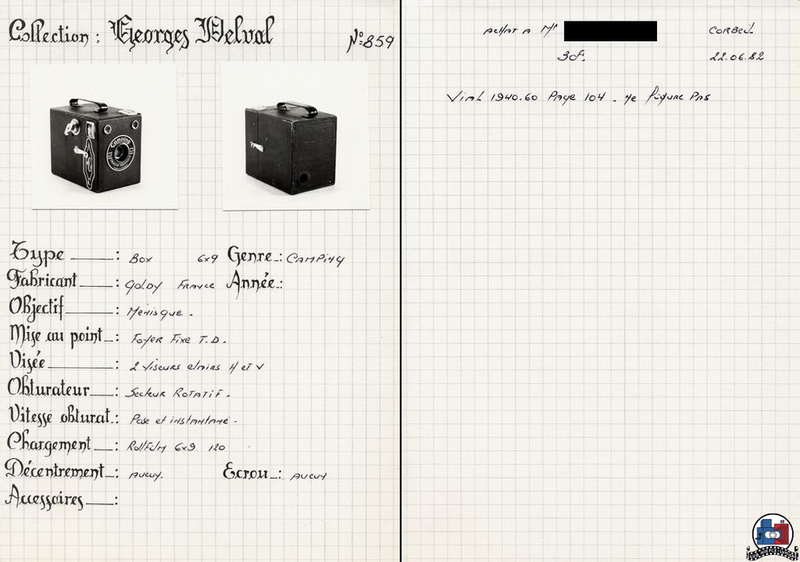 Collection : Georges Delval
N°=859
Type : Box 6x9 Genre : CAMPING
Fabricant : GOLDY FRANCE Année :
Objectif : Ménisque .
Mise au point : Foyer Fixe T.D.
Visée : 2 Viseurs clairs H et V
Obturateur : Secteur Rotatif .
Vitesse obturat : Pose et instantané .
Chargement : Rollfilm 6x9 120
Décentrement : AUCUN. Ecrou : AUCUN
Accessoires :
ACHAT A Mr CORBEIL
30F. 22.06.82
Vial 1940.60 Page 104 . Ne figure Pas